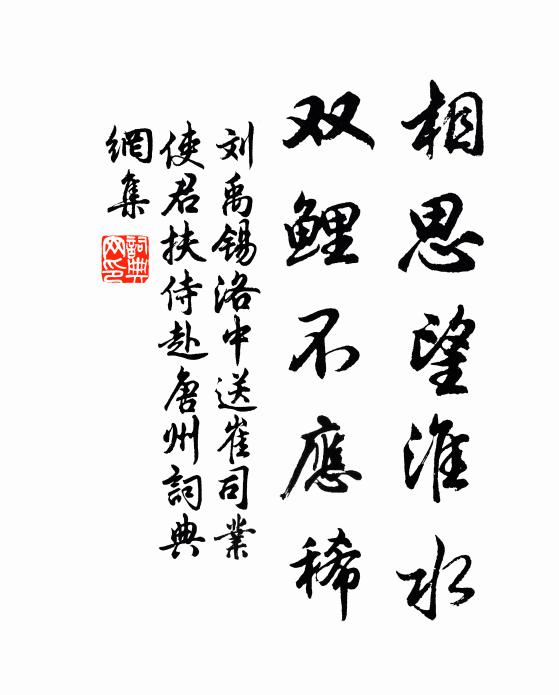 相思望淮水
双鲤不應稀
刘禹锡洛中送崔司業
使君扶侍赴唐州詞典
網集
詞典網印